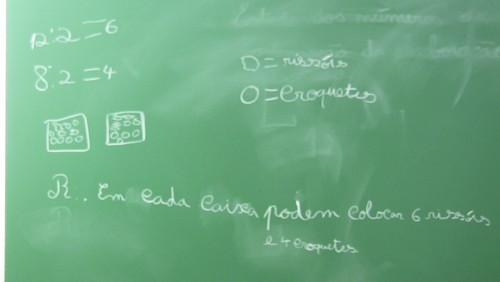 12:2=6
8:2=4
D=rissóis
O=Croquetes
R.. Em cada caixa podem colocar 6 rissóis
e 4 croquetes